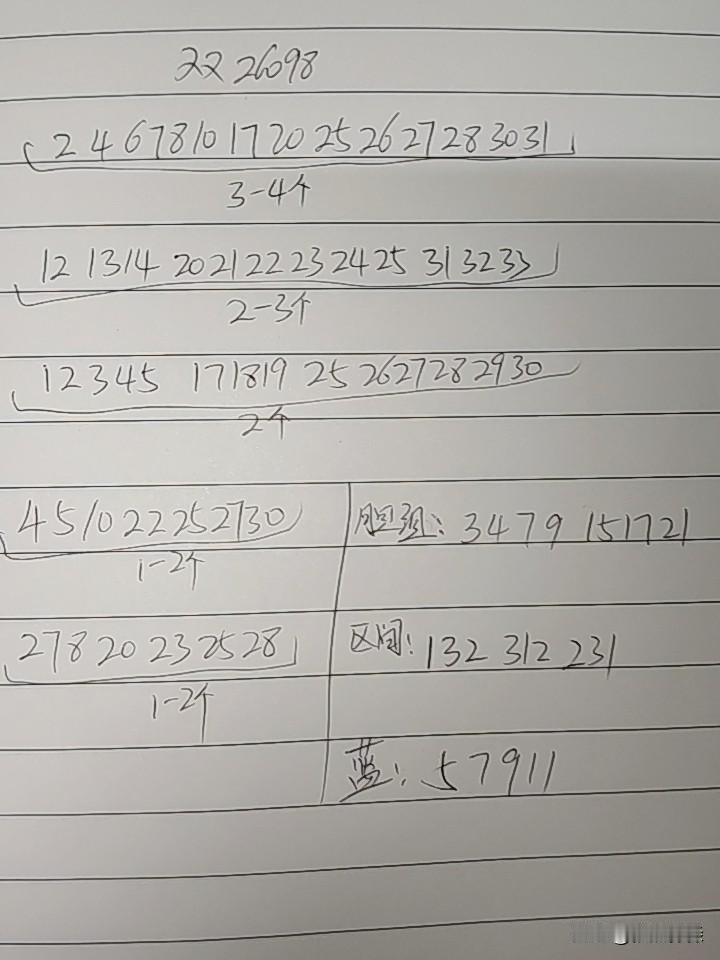 22 26098
2 4 6 7 8 10 17 20 25 26 27 28 30 31
3-4个
12 13 14 20 21 22 23 24 25 31 32 33
2-3个
1 2 3 4 5 17 18 19 25 26 27 28 29 30
2个
4 5 10 22 25 27 30
1-2个
2 7 8 20 23 25 28
1-2个
胆组: 3 4 7 9 15 17 21
区间: 132 312 231
蓝: 5 7 9 11